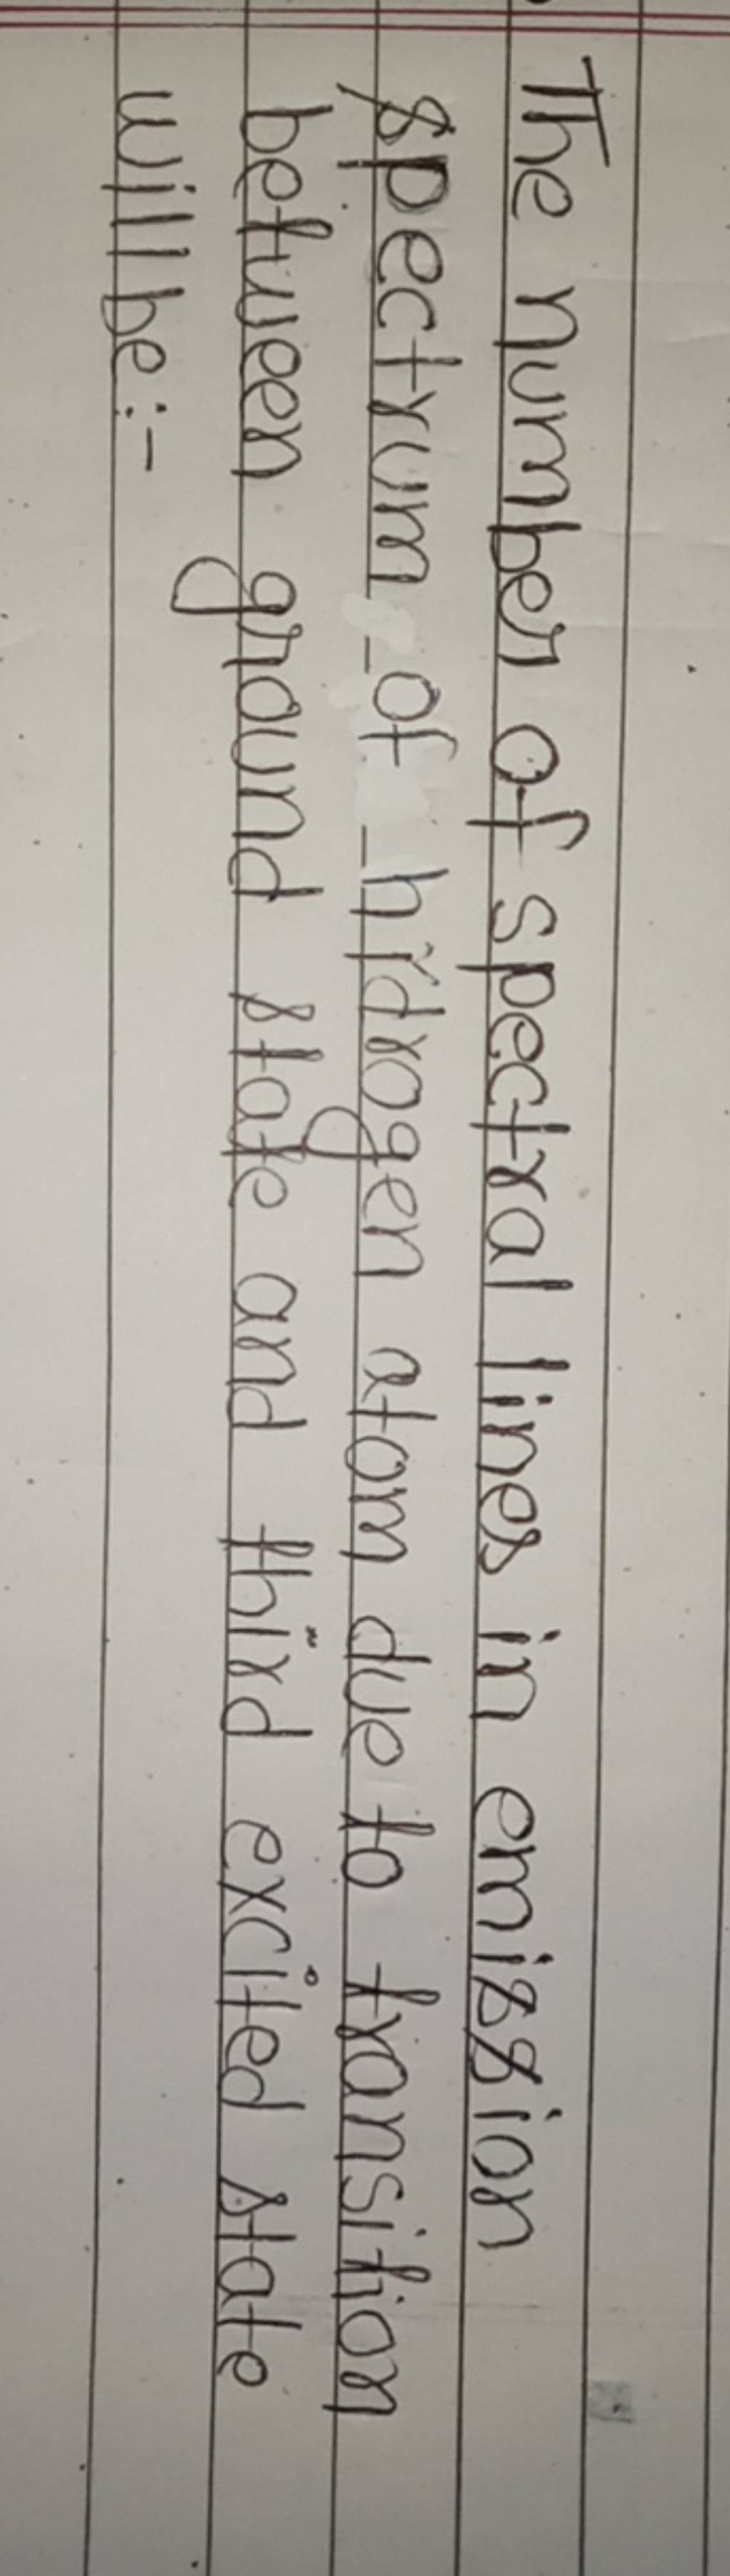 The number of spectral lines in emission
spectrum of hidrogen atom due to transition
between ground state and third excited state
will be :-